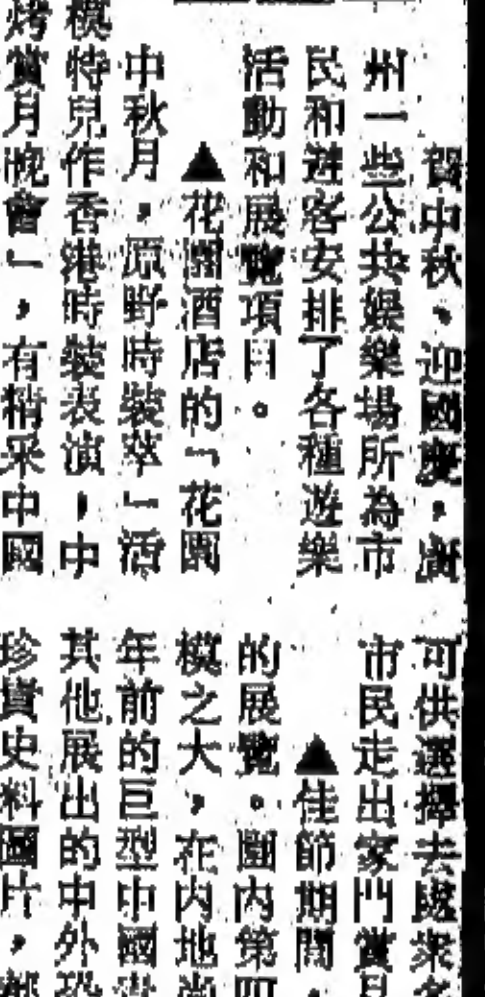 賀中秋,迎國慶,廣
州一些公共娛樂場所為市
民和遊客安排了各種遊樂
活動和展覽項目。
▲花園酒店的「花園
中秋月,原野時裝萃」活
模特兒作香港時裝表演,中
烤賞月晚會」,有精采中國
可供選擇去處眾多
市民走出家門賞月
▲佳節期間,
的展覽。園內第四
模之大,在內地尚
年前的巨型中國
其他展出的中外恐
珍貴史料圖片,都